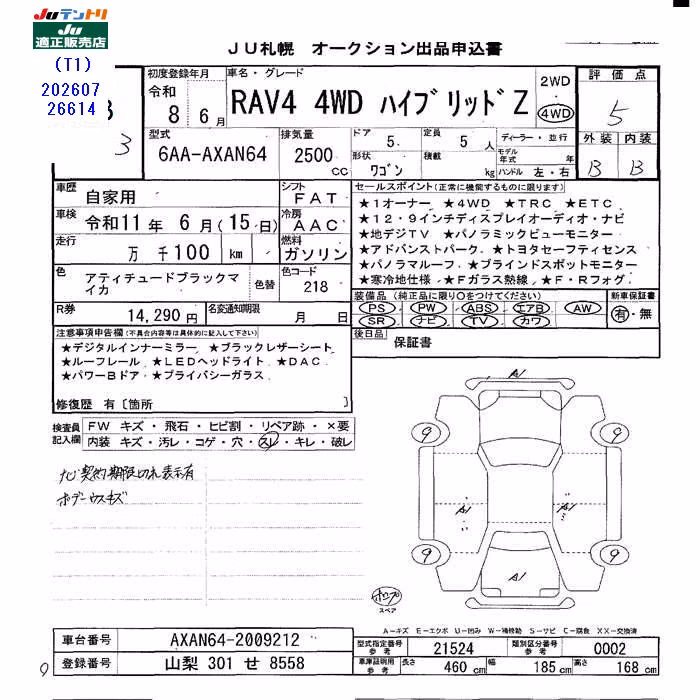 JUテントリ
JU
適正販売店
(T1)
202607
26614
3
JU札幌 オークション出品申込書
初度登録年月
令和
8 6月
車名・グレード
RAV4 4WD ハイブリッドZ
2WD
4WD
評価点
5
外装 内装
B B
型式
6AA-AXAN64
排気量
2500 cc
ドア
5
定員
5 人
形状
ワゴン
積載
kg
ディーラー・並行
モデル年式 年式
ハンドル 左・右
車歴
自家用
シフト
FAT
車検
令和11年 6月(15日)
冷房
AAC
走行
万 千100 km
燃料
ガソリン
色
アティチュードブラックマイカ
色替
色コード
218
R券
14,290円
名変通知期限
月 日
セールスポイント(正常に機能するものに限ります)
★1オーナー ★4WD ★TRC ★ETC
★12・9インチディスプレイオーディオ・ナビ
★地デジTV ★パノラミックビューモニター
★アドバンストパーク ★トヨタセーフティセンス
★パノラマルーフ ★ブラインドスポットモニター
★寒冷地仕様 ★Fガラス熱線 ★F・Rフォグ
装備品(純正品に限り○をつけてください)
PS PW ABS エアB AW
SR ナビ TV カワ
新車保証書
有・無
後日品
保証書
注意事項申告欄(不具合内容等は具体的に記入して下さい)
★デジタルインナーミラー ★ブラックレザーシート
★ルーフレール ★LEDヘッドライト ★DAC
★パワーBドア ★プライバシーガラス
修復歴 有〔箇所 〕
検査員記入欄
FW キズ・飛石・ヒビ割・リペア跡・×要
内装 キズ・汚レ・コゲ・穴・スレ・キレ・破レ
ナビ契約期限切れ表示有
ボデーウスキズ
9 9
A1 A1 A1
9 9
A1
ホロプ
スペア
A-キズ E-エクボ U-凹み W-補修跡 S-サビ C-腐食 XX-交換済
車台番号
AXAN64-2009212
登録番号
山梨 301 せ 8558
型式指定番号 参考
21524
類別区分番号 参考
0002
車庫証明用 参考
長さ 460 cm 幅 185 cm 高さ 168 cm
9